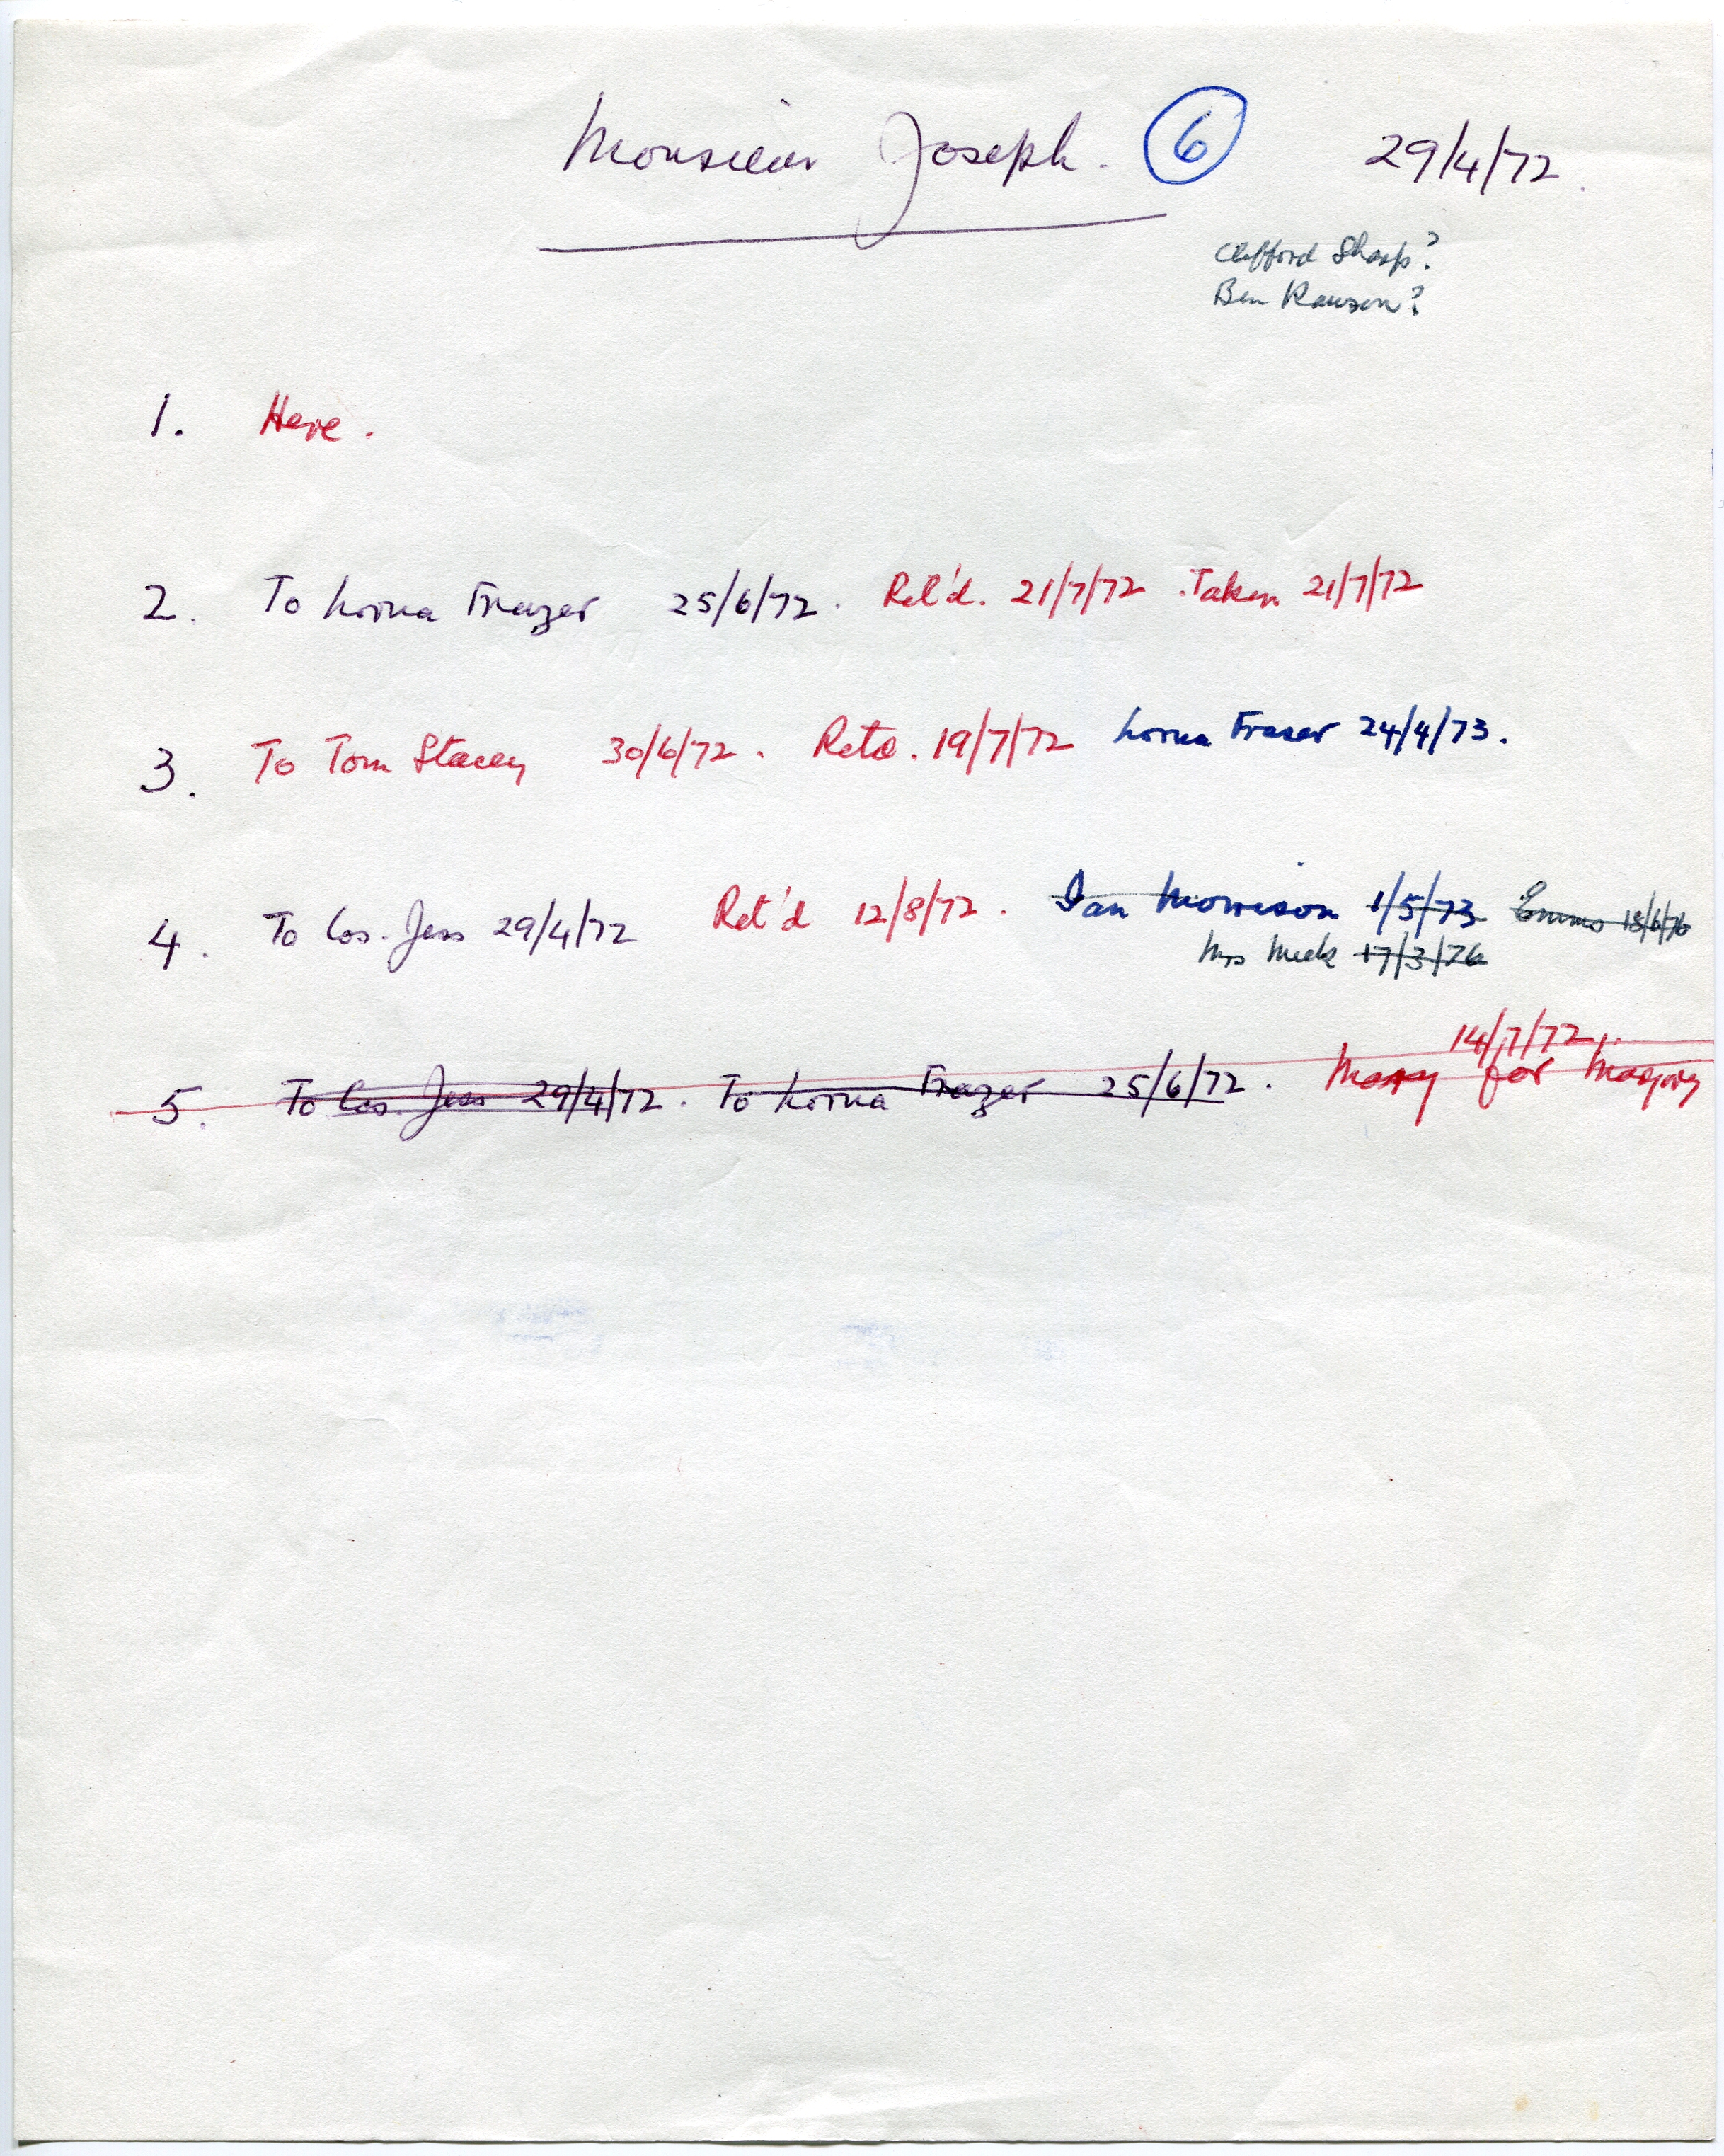 Monsieur Joseph. 6 29/4/72.
Clifford Sharp?
Ben Rawson?
1. Here.
2. To Lorna Frazer 25/6/72. Ret'd. 21/7/72. Taken 21/7/72
3. To Tom Stacey 30/6/72. Retd. 19/7/72 Lorna Fraser 24/4/73.
4. To Cos. Jess 29/4/72 Ret'd 12/8/72. Ian Morrison 1/5/73 Emma 18/6/76
Mrs Meek 17/3/76
14/7/72
5. To Cos. Jess 29/4/72. To Lorna Frazer 25/6/72. for